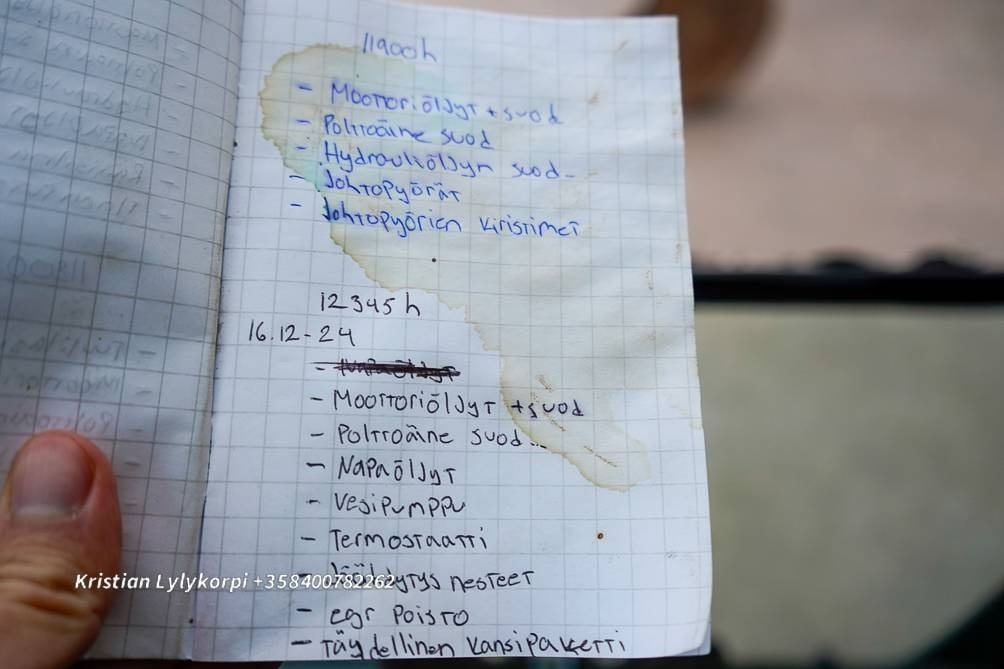 11900h
- Moottoriöljyt + suod
- Polttoaine suod
- Hydrauliöljyn suod-
- Johtopyörät
- Johtopyörien kiristimet
12345 h
16.12-24
- Moottoriöljyt + suod
- Polttoaine suod..
- Napaöljyt
- Vesipumppu
- Termostaatti
- Jäähdytys nesteet
Kristian Lylykorpi +358400782262
- egr poisto
- Täydellinen kansipaketti